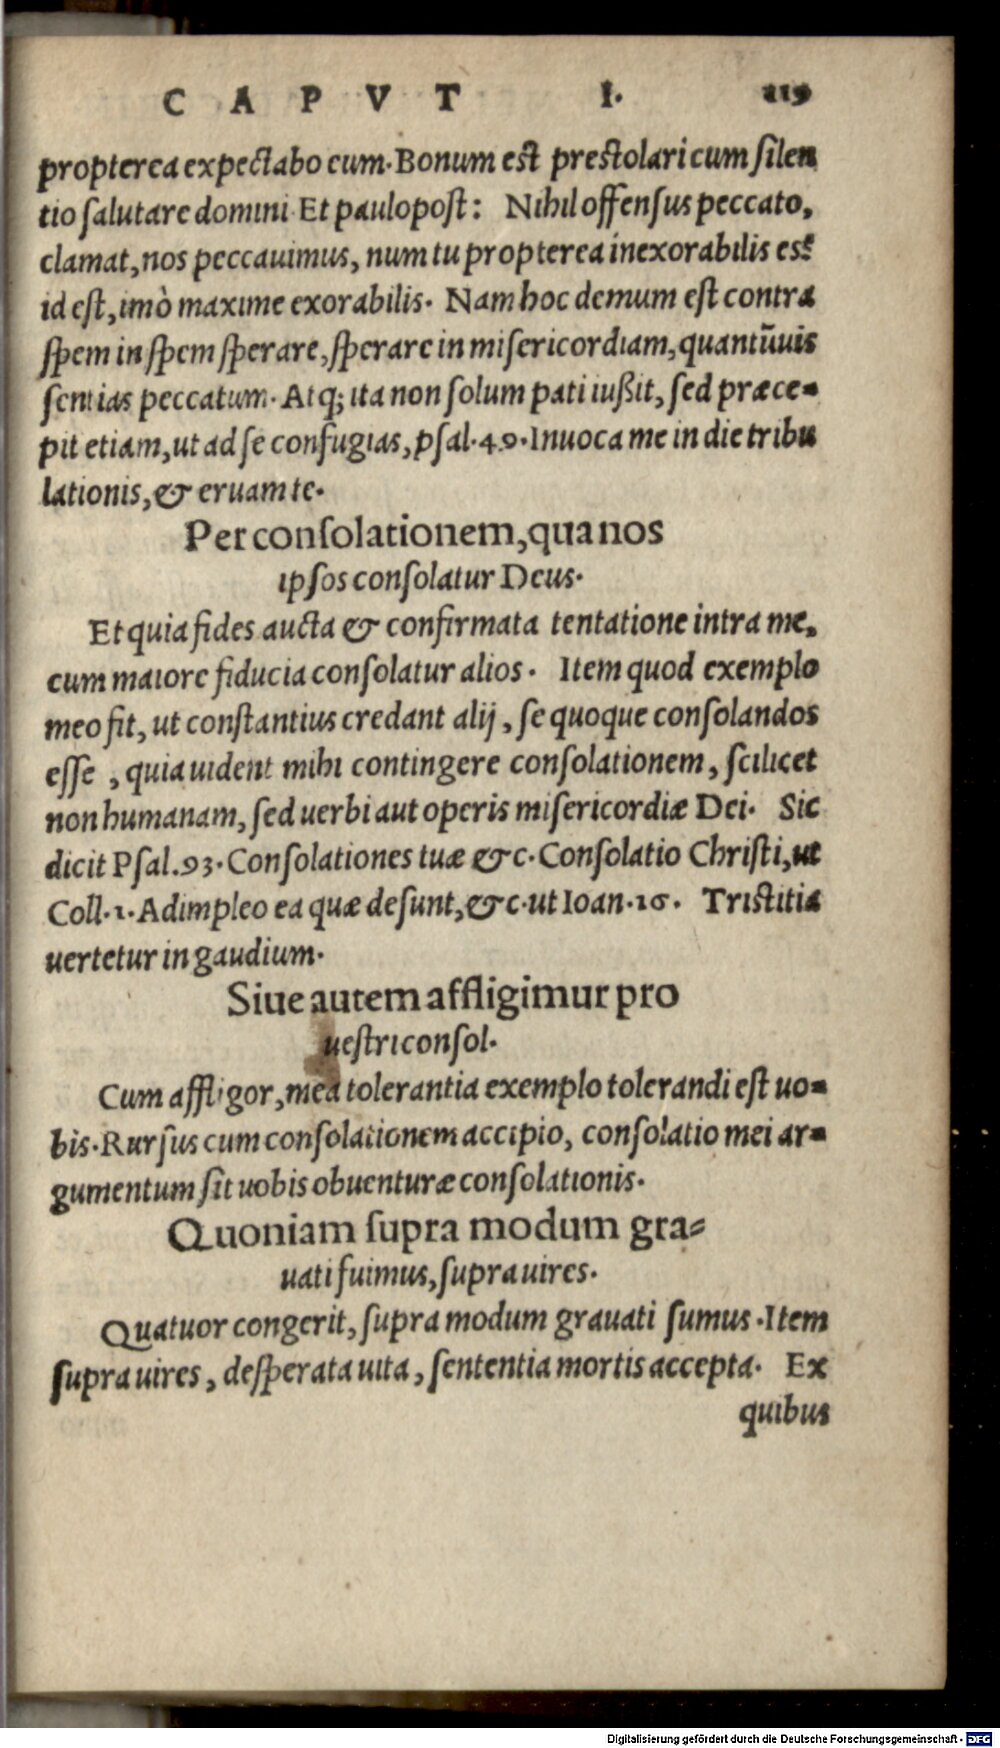 CAPVT I. 119
propterea expectabo eum. Bonum est prestolari cum silen
tio salutare domini Et paulopost: Nihil offensus peccato,
clamat, nos peccauimus, num tu propterea inexorabilis es?
id est, imò maxime exorabilis. Nam hoc demum est contra
spem in spem sperare, sperare in misericordiam, quantũuis
sentias peccatum. Atq; ita non solum pati iußit, sed præce-
pit etiam, ut ad se confugias, psal. 49. Inuoca me in die tribu
lationis, & eruam te.
Per consolationem, qua nos
ipsos consolatur Deus.
Et quia fides aucta & confirmata tentatione intra me,
cum maiore fiducia consolatur alios. Item quod exemplo
meo fit, ut constantius credant alij, se quoque consolandos
esse, quia uident mihi contingere consolationem, scilicet
non humanam, sed uerbi aut operis misericordiæ Dei. Sic
dicit Psal. 93. Consolationes tuæ &c. Consolatio Christi, ut
Coll. 1. Adimpleo ea quæ desunt, &c. ut Ioan. 16. Tristitia
uertetur in gaudium.
Siue autem affligimur pro
uestri consol.
Cum affligor, mea tolerantia exemplo tolerandi est uo-
bis. Rursus cum consolationem accipio, consolatio mei ar-
gumentum sit uobis obuenturæ consolationis.
Quoniam supra modum gra-
uati fuimus, supra uires.
Quatuor congerit, supra modum grauati sumus. Item
supra uires, desperata uita, sententia mortis accepta. Ex
quibus
Digitalisierung gefördert durch die Deutsche Forschungsgemeinschaft - DFG